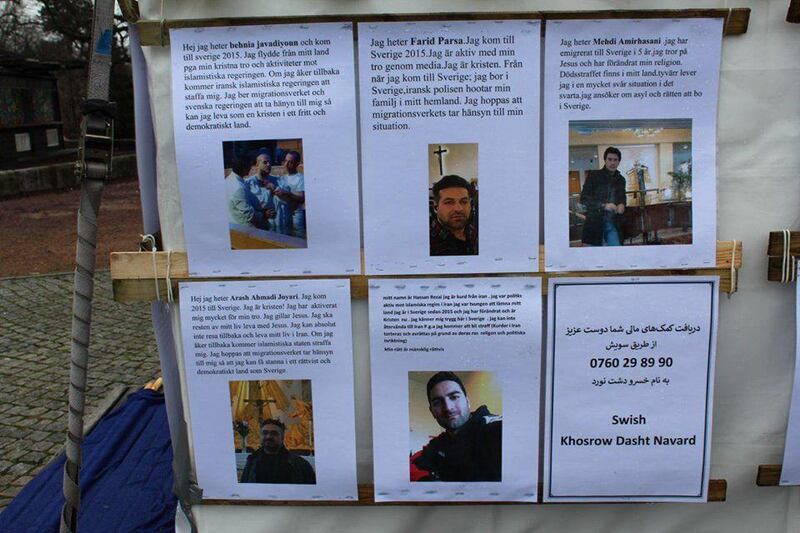 Hej jag heter behnia javadiyoun och kom
till sverige 2015. Jag flydde från mitt land
pga min kristna tro och aktiviteter mot
islamistiska regeringen. Om jag åker tillbaka
kommer iransk islamistiska regeringen att
staffa mig. Jag ber migrationsverket och
svenska regeringen att ta hänyn till mig så
kan jag leva som en kristen i ett fritt och
demokratiskt land.
Jag heter Farid Parsa.Jag kom till
Sverige 2015.Jag är aktiv med min
tro genom media.Jag är kristen. Från
när jag kom till Sverige; jag bor i
Sverige,iransk polisen hootar min
familj i mitt hemland. Jag hoppas att
migrationsverkets tar hänsyn till min
situation.
Jag heter Mehdi Amirhasani .jag har
emigrerat till Sverige i 5 år.jag tror på
Jesus och har förändrat min religion.
Dödsstraffet finns i mitt land.tyvärr lever
jag i en mycket svår situation i det
svarta.jag ansöker om asyl och rätten att bo
i Sverige.
Hej jag heter Arash Ahmadi Joyari. Jag kom
2015 till Sverige. Jag är kristen! Jag har aktiverat
mig mycket för min tro. Jag gillar Jesus. Jag ska
resten av mitt liv leva med Jesus. Jag kan absolut
inte resa tillbaka och leva mitt liv i Iran. Om jag
åker tillbaka kommer islamistiska staten straffa
mig. Jag hoppas att migrationsverket tar hänsyn
till mig så att jag kan få stanna i ett rättvist och
demokratiskt land som Sverige.
mitt namn är Hassan Rezai jag är kurd från iran . jag var politiks
aktiv mot islamiska regim i iran jag var tvungen att lämna mitt
land jag är i Sverige sedan 2015 och jag har förändrat och är
Kristen nu . Jag känner mig trygg här i Sverige . Jag kan inte
återvända till Iran P.g.a jag kommer att bli straff (Kurder i Iran
torteras och avrättas på grund av deras ras religon och politiska
inriktning)
Min rätt är mänsklig rättvis
دریافت کمک‌های مالی شما دوست عزیز
از طریق سویش
0760 29 89 90
به نام خسرو دشت نورد
Swish
Khosrow Dasht Navard